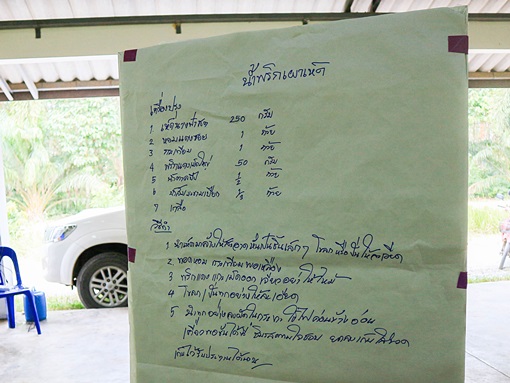 น้ำพริกเผาเห็ด
เครื่องปรุง
1 เห็ดนางฟ้า 250 กรัม
2 หอมแดงซอย 1 ถ้วย
3 กระเทียม 1 ถ้วย
4 พริกแดงเม็ดใหญ่ 50 กรัม
5 น้ำตาลปี๊บ 1/2 ถ้วย
6 น้ำส้มมะขามเปียก 1/2 ถ้วย
7 เกลือ
วิธีทำ
1 ให้สะอาด หั่นเป็นชิ้นเล็กๆ โขลกหรือปั่นให้ละเอียด
2 ทอดหอม กระเทียมพอเหลือง
3 พริกแดง แกะเม็ดออก อย่าให้ไหม้
4 โขลก/ปั่นทุกอย่างให้ละเอียด
5 ใช้ไฟค่อนข้างอ่อน
เคี่ยว ชิมรสตามใจชอบ
เก็บไว้รับประทานได้นาน